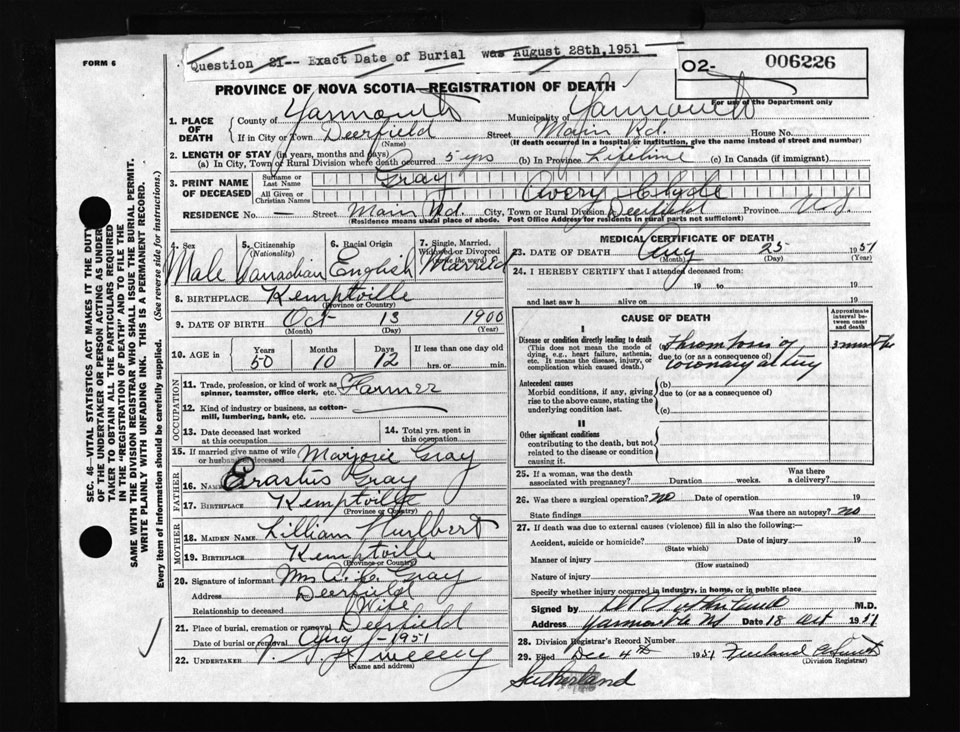 Question 21-- Exact Date of Burial was August 28th,1951
FORM 6
02- 006226
PROVINCE OF NOVA SCOTIA—REGISTRATION OF DEATH
For use of the Department only
1. PLACE OF DEATH
County of Yarmouth Municipality of Yarmouth
If in City or Town Deerfield Street Main Rd. House No.
(Name) (If death occurred in a hospital or institution, give the name instead of street and number)
2. LENGTH OF STAY (in years, months and days)
(a) In City, Town or Rural Division where death occurred 5 yrs (b) In Province Lifetime (c) In Canada (if immigrant)
3. PRINT NAME OF DECEASED
Surname or Last Name Gray
All Given or Christian Names Avery Clyde
RESIDENCE No. — Street Main Rd. City, Town or Rural Division Deerfield Province N.S.
(Residence means usual place of abode. Post Office Address for rural parts not sufficient)
4. Sex Male
5. Citizenship (Nationality) Canadian
6. Racial Origin English
7. Single, Married, Widowed or Divorced (write the word) Married
8. BIRTHPLACE Kemptville
(Province or Country)
9. DATE OF BIRTH Oct 13 1900
(Month) (Day) (Year)
10. AGE in Years Months Days If less than one day old
50 10 12 hrs. or min.
OCCUPATION
11. Trade, profession, or kind of work as spinner, teamster, office clerk, etc. Farmer
12. Kind of industry or business, as cotton-mill, lumbering, bank, etc.
13. Date deceased last worked at this occupation
14. Total yrs. spent in this occupation
15. If married give name of wife or husband of deceased Marjorie Gray
FATHER
16. NAME Erastus Gray
17. BIRTHPLACE Kemptville
(Province or Country)
MOTHER
18. MAIDEN NAME Lillian Hurlbert
19. BIRTHPLACE Kemptville
(Province or Country)
20. Signature of informant Mrs A. C. Gray
Address Deerfield
Relationship to deceased Wife
21. Place of burial, cremation or removal Deerfield
Date of burial or removal Aug -1951
22. UNDERTAKER Sweeny
(Name and address)
MEDICAL CERTIFICATE OF DEATH
23. DATE OF DEATH Aug 25 1951
(Month) (Day) (Year)
24. I HEREBY CERTIFY that I attended deceased from
19 to 19
and last saw h alive on 19
CAUSE OF DEATH
Approximate interval between onset and death
I
Disease or condition directly leading to death
(This does not mean the mode of dying, e.g., heart failure, asthenia, etc. It means the disease, injury, or complication which caused death.)
Thrombosis of
due to (or as a consequence of)
coronary artery
Antecedent causes
Morbid conditions, if any, giving rise to the above cause, stating the underlying condition last.
(b)
due to (or as a consequence of)
(c)
II
Other significant conditions
contributing to the death, but not related to the disease or condition causing it.
25. If a woman, was the death associated with pregnancy? Duration weeks. Was there a delivery?
26. Was there a surgical operation? no Date of operation 19
State findings Was there an autopsy? no
27. If death was due to external causes (violence) fill in also the following:—
Accident, suicide or homicide? Date of injury 19
(State which)
Manner of injury
(How sustained)
Nature of injury
Specify whether injury occurred in industry, in home, or in public place
Signed by M.D.
Address Yarmouth NS Date 18 Oct 1951
28. Division Registrar's Record Number
29. Filed Dec 4th 1951
(Division Registrar)
Sutherland
SEC. 46—VITAL STATISTICS ACT MAKES IT THE DUTY
OF THE UNDERTAKER OR PERSON ACTING AS UNDER-
TAKER TO OBTAIN ALL THE PARTICULARS REQUIRED
IN THE "REGISTRATION OF DEATH" AND TO FILE THE
SAME WITH THE DIVISION REGISTRAR WHO SHALL ISSUE THE BURIAL PERMIT.
WRITE PLAINLY WITH UNFADING INK. THIS IS A PERMANENT RECORD.
Every item of information should be carefully supplied. (See reverse side for instructions.)